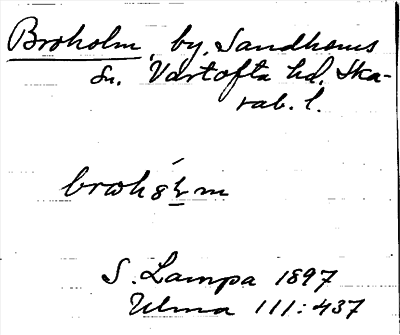 Broholm, by, Sandhems
sn. Vartofta hd. Ska-
rab. l.
S. Lampa 1897
Ulma 111:437